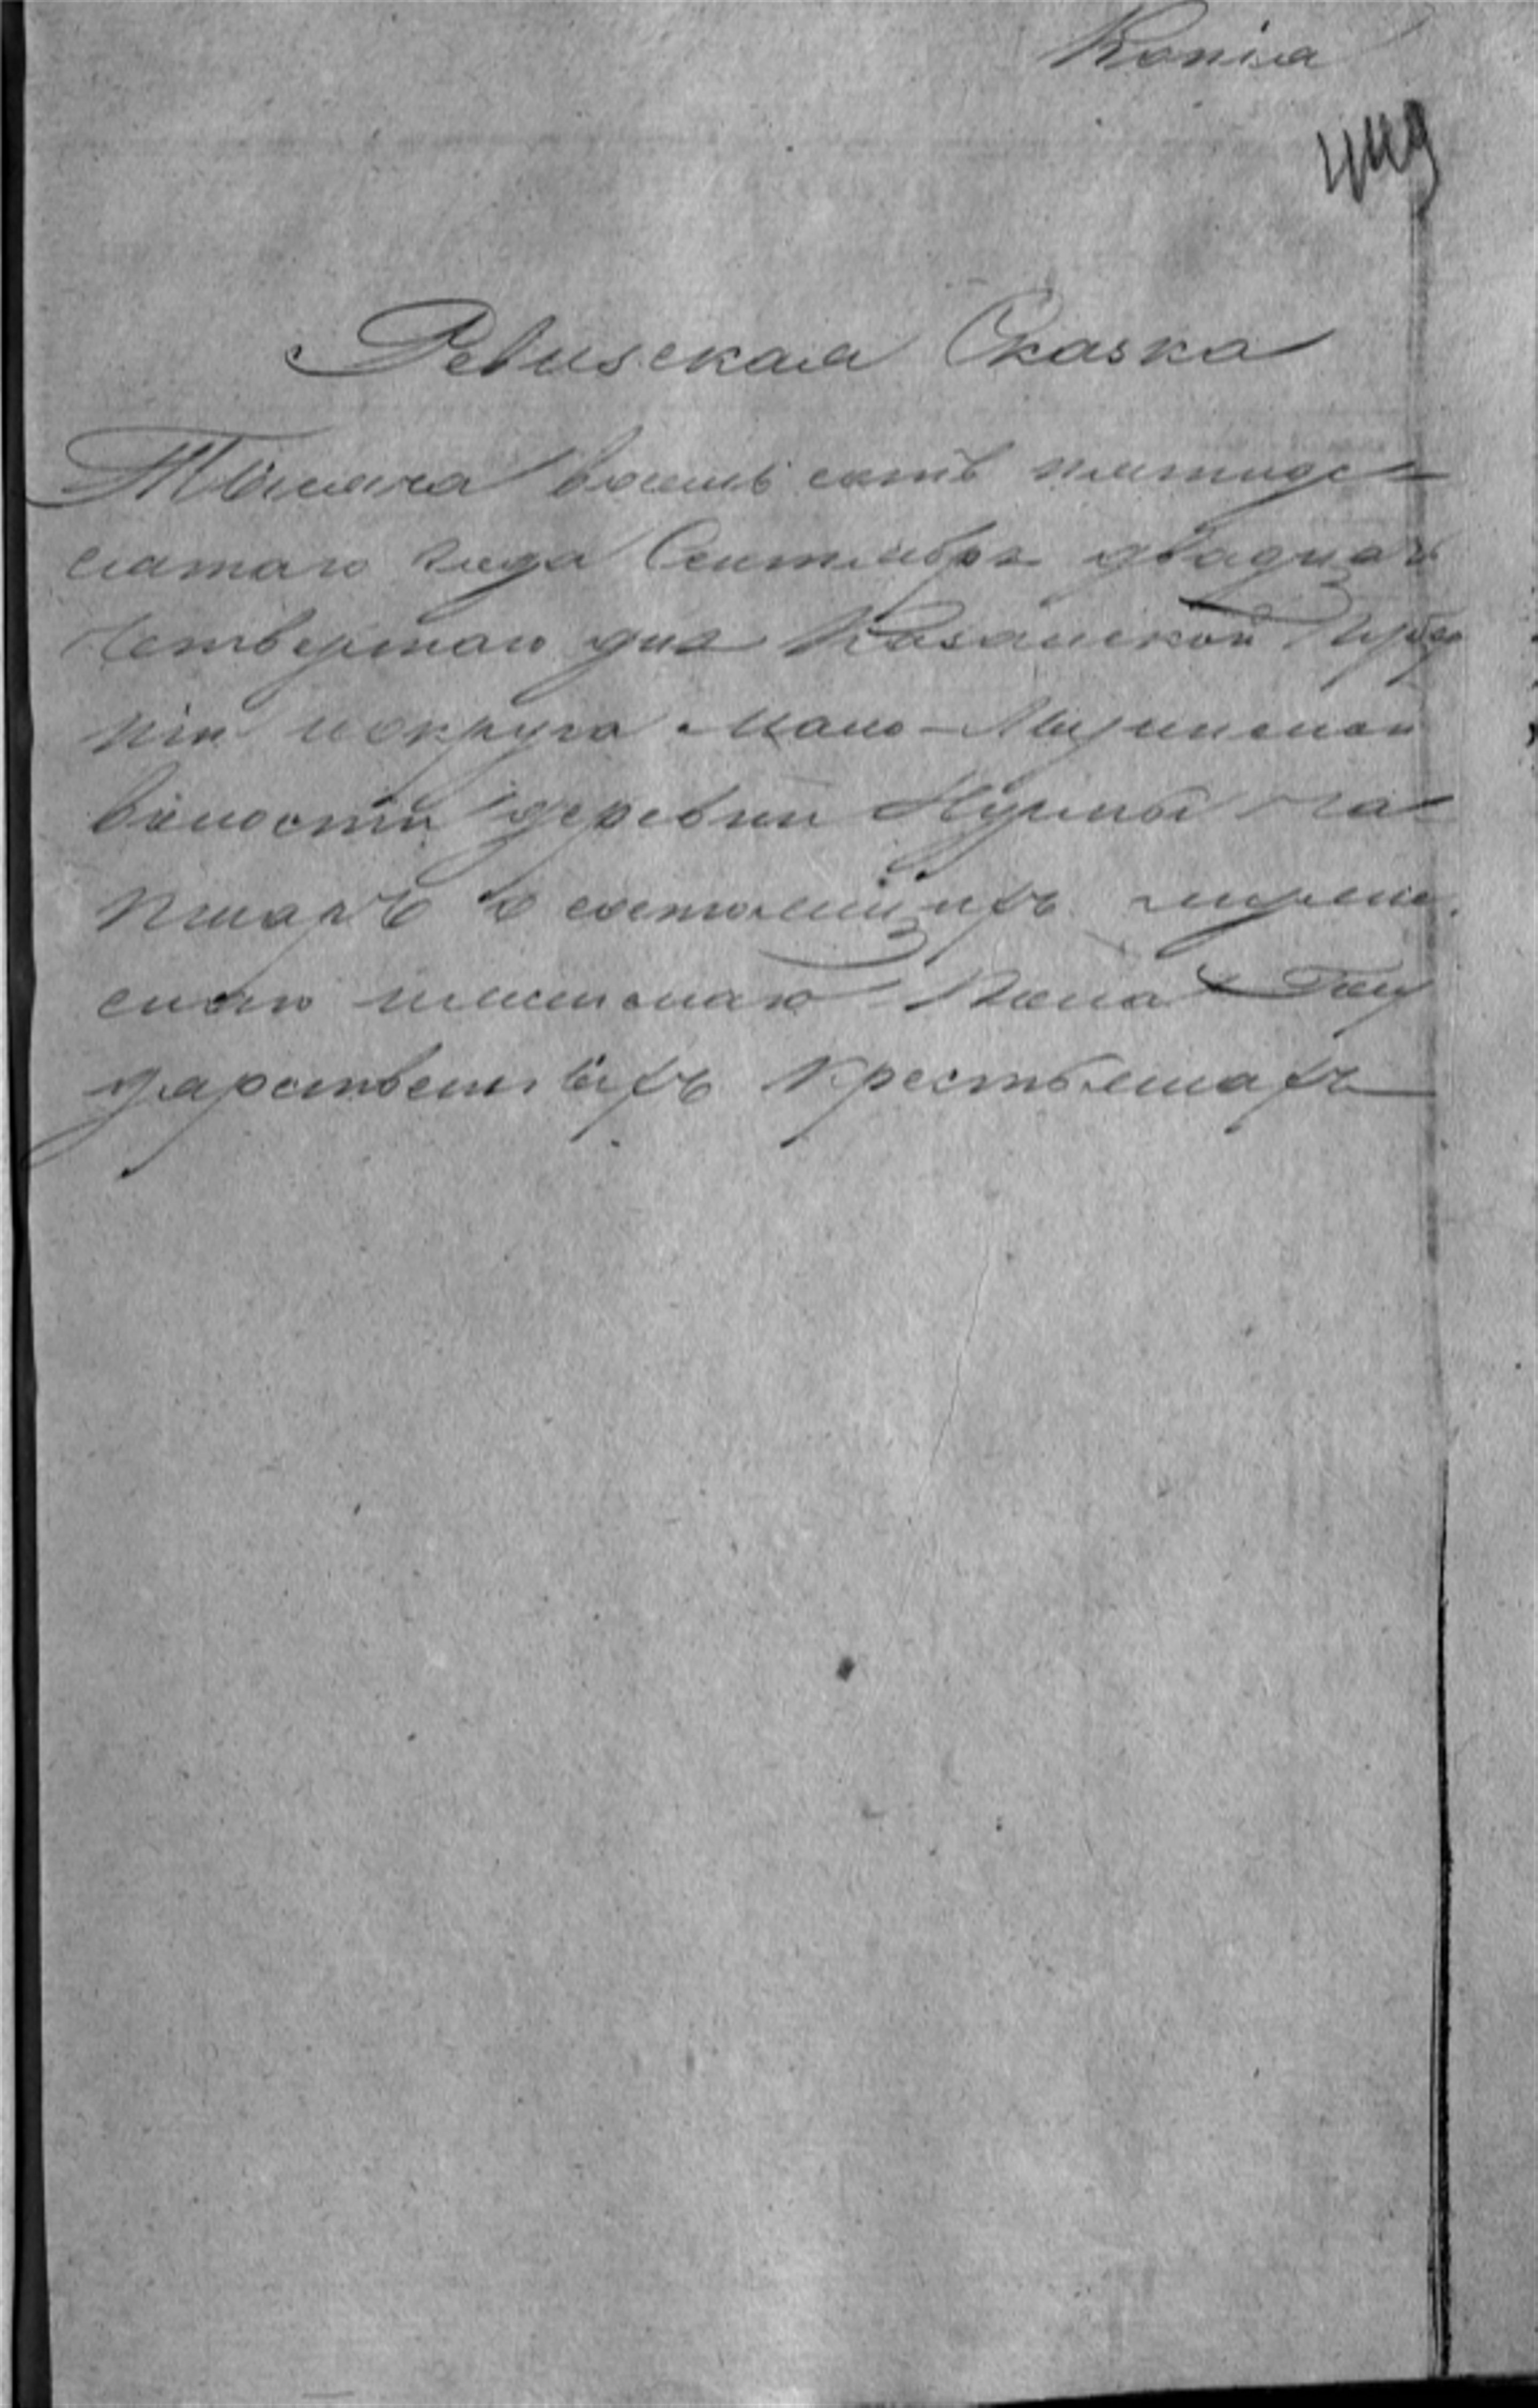 Копія
449
Ревизская Сказка
Тысяча восемь сотъ пятиде-
сятаго года Сентября двадцать
четвертаго дня Казанской Губер
ніи и округа Мало-
волости деревни Нурмы
о состоящихъ
Госу
дарственныхъ крестьянахъ